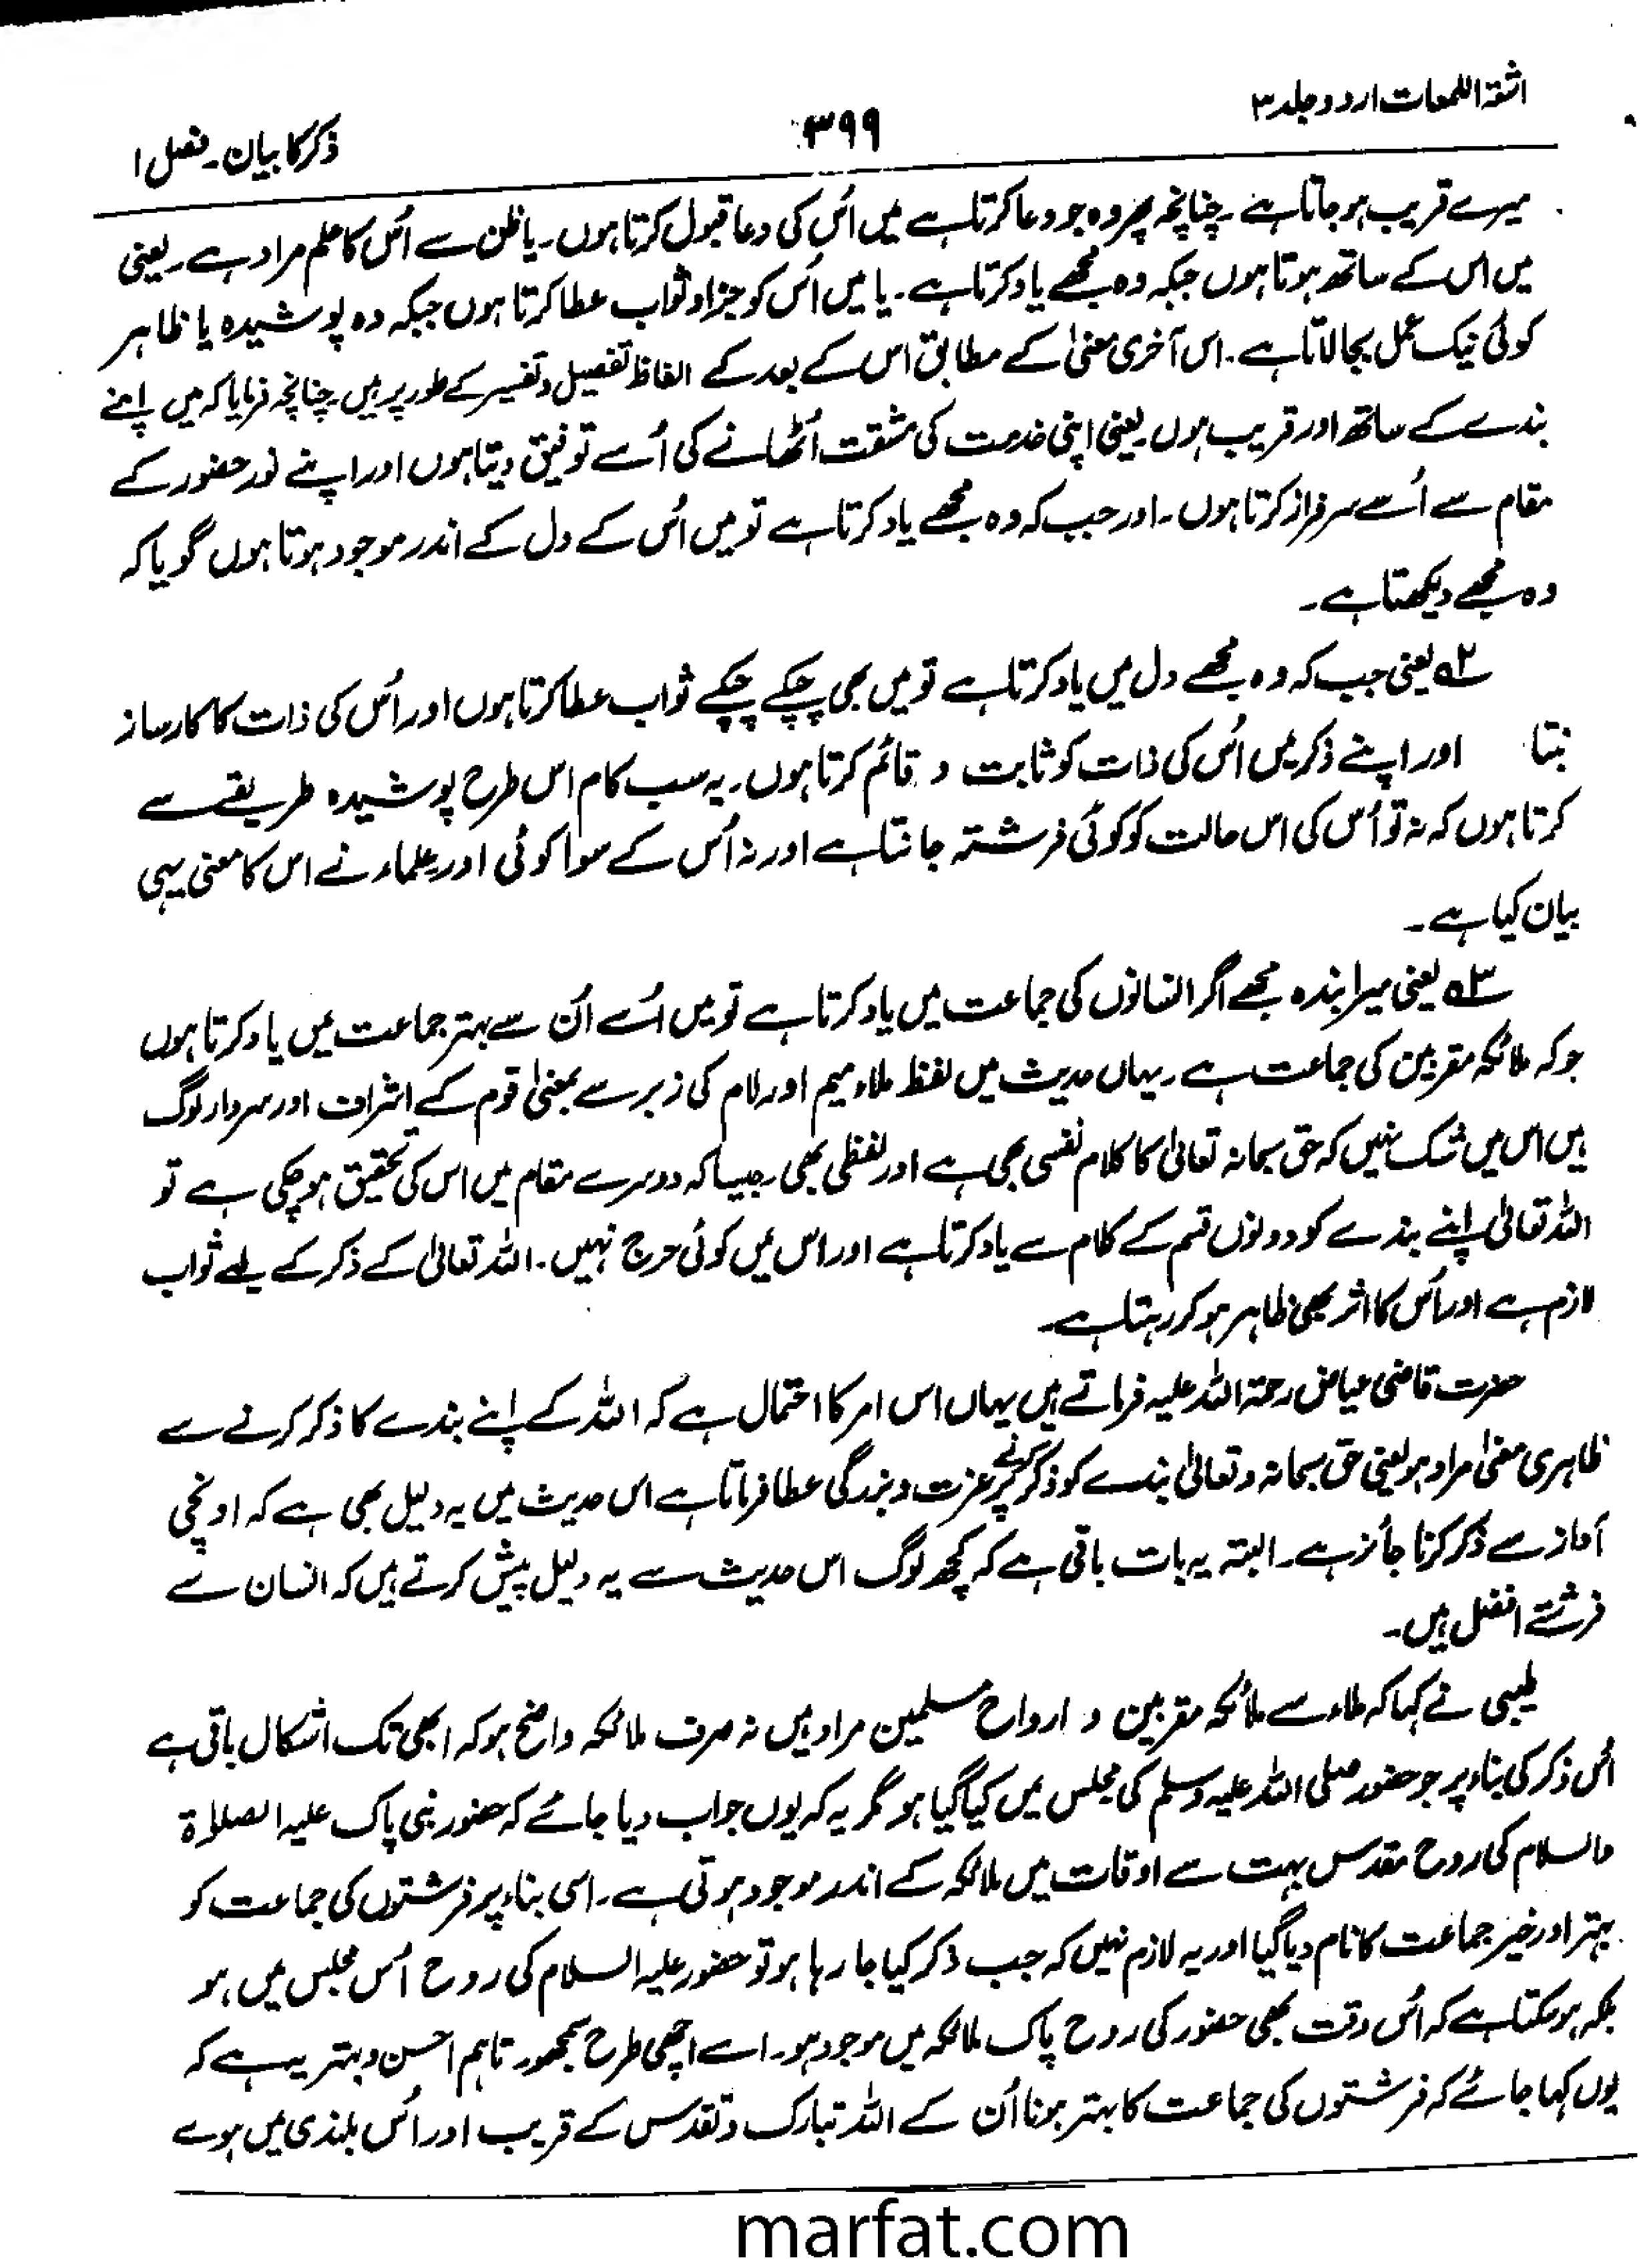 اشعۃ اللمعات اردو جلد ۳
۳۹۹
ذکر کا بیان۔ فصل ۱
میرے قریب ہو جاتا ہے۔ چنانچہ پھر وہ جو دعا کرتا ہے میں اُس کی دعا قبول کرتا ہوں۔ یا ظن سے اُس کا علم مراد ہے۔ یعنی
میں اس کے ساتھ ہوتا ہوں جبکہ وہ مجھے یاد کرتا ہے۔ یا میں اُس کو جزا و ثواب عطا کرتا ہوں جبکہ وہ پوشیدہ یا ظاہر
کوئی نیک عمل بجا لاتا ہے۔ اس آخری معنیٰ کے مطابق اس کے بعد کے الفاظ تفصیل و تفسیر کے طور پر ہیں۔ چنانچہ فرمایا کہ میں اپنے
بندے کے ساتھ اور قریب ہوں۔ یعنی اپنی خدمت کی مشقت اُٹھانے کی اُسے توفیق دیتا ہوں اور اپنے نور حضور کے
مقام سے اُسے سرفراز کرتا ہوں۔ اور جب کہ وہ مجھے یاد کرتا ہے تو میں اُس کے دل کے اندر موجود ہوتا ہوں گویا کہ
وہ مجھے دیکھتا ہے۔
۲ یعنی جب کہ وہ مجھے دل میں یاد کرتا ہے تو میں بھی چپکے چپکے ثواب عطا کرتا ہوں اور اُس کی ذات کا کارساز
بنتا اور اپنے ذکر میں اُس کی ذات کو ثابت و قائم کرتا ہوں۔ یہ سب کام اس طرح پوشیدہ طریقے سے
کرتا ہوں کہ نہ تو اُس کی اس حالت کو کوئی فرشتہ جانتا ہے اور نہ اُس کے سوا کوئی اور علماء نے اس کا معنی یہی
بیان کیا ہے۔
۳ یعنی میرا بندہ مجھے اگر انسانوں کی جماعت میں یاد کرتا ہے تو میں اُسے اُن سے بہتر جماعت میں یاد کرتا ہوں
جو کہ ملائکہ مقربین کی جماعت ہے۔ یہاں حدیث میں لفظ ملاء میم اور لام کی زبر سے بمعنیٰ قوم کے اشراف اور سردار لوگ
ہیں اس میں شک نہیں کہ حق سبحانہ تعالیٰ کا کلام نفسی بھی ہے اور لفظی بھی۔ جیسا کہ دوسرے مقام میں اس کی تحقیق ہو چکی ہے تو
اللہ تعالیٰ اپنے بندے کو دونوں قسم کے کلام سے یاد کرتا ہے اور اس میں کوئی حرج نہیں۔ اللہ تعالیٰ کے ذکر کے لیے ثواب
لازم ہے اور اُس کا اثر بھی ظاہر ہو کر رہتا ہے۔
حضرت قاضی عیاض رحمۃ اللہ علیہ فرماتے ہیں یہاں اس امر کا احتمال ہے کہ اللہ کے اپنے بندے کا ذکر کرنے سے
ظاہری معنیٰ مراد ہو یعنی حق سبحانہ و تعالیٰ بندے کو ذکر کرنے پر عزت و بزرگی عطا فرماتا ہے اس حدیث میں یہ دلیل بھی ہے کہ اونچی
آواز سے ذکر کرنا جائز ہے۔ البتہ یہ بات باقی ہے کہ کچھ لوگ اس حدیث سے یہ دلیل پیش کرتے ہیں کہ انسان سے
فرشتے افضل ہیں۔
طیبی نے کہا کہ ملاء سے ملائکہ مقربین و ارواح مسلمین مراد ہیں نہ صرف ملائکہ واضح ہو کہ ابھی تک اشکال باقی ہے
اُس ذکر کی بناء پر جو حضور صلی اللہ علیہ وسلم کی مجلس میں کیا گیا ہو مگر یہ کہ یوں جواب دیا جائے کہ حضور نبی پاک علیہ الصلاۃ
والسلام کی روح مقدس بہت سے اوقات میں ملائکہ کے اندر موجود ہوتی ہے۔ اسی بناء پر فرشتوں کی جماعت کو
بہتر اور خیر جماعت کا نام دیا گیا اور یہ لازم نہیں کہ جب ذکر کیا جا رہا ہو تو حضور علیہ السلام کی روح اُس مجلس میں ہو
بلکہ ہو سکتا ہے کہ اُس وقت بھی حضور کی روح پاک ملائکہ میں موجود ہو۔ اسے اچھی طرح سمجھو۔ تاہم احسن و بہتر یہ ہے کہ
یوں کہا جائے کہ فرشتوں کی جماعت کا بہتر ہونا اُن کے اللہ تبارک و تقدس کے قریب اور اُس بلندی میں ہونے
marfat.com